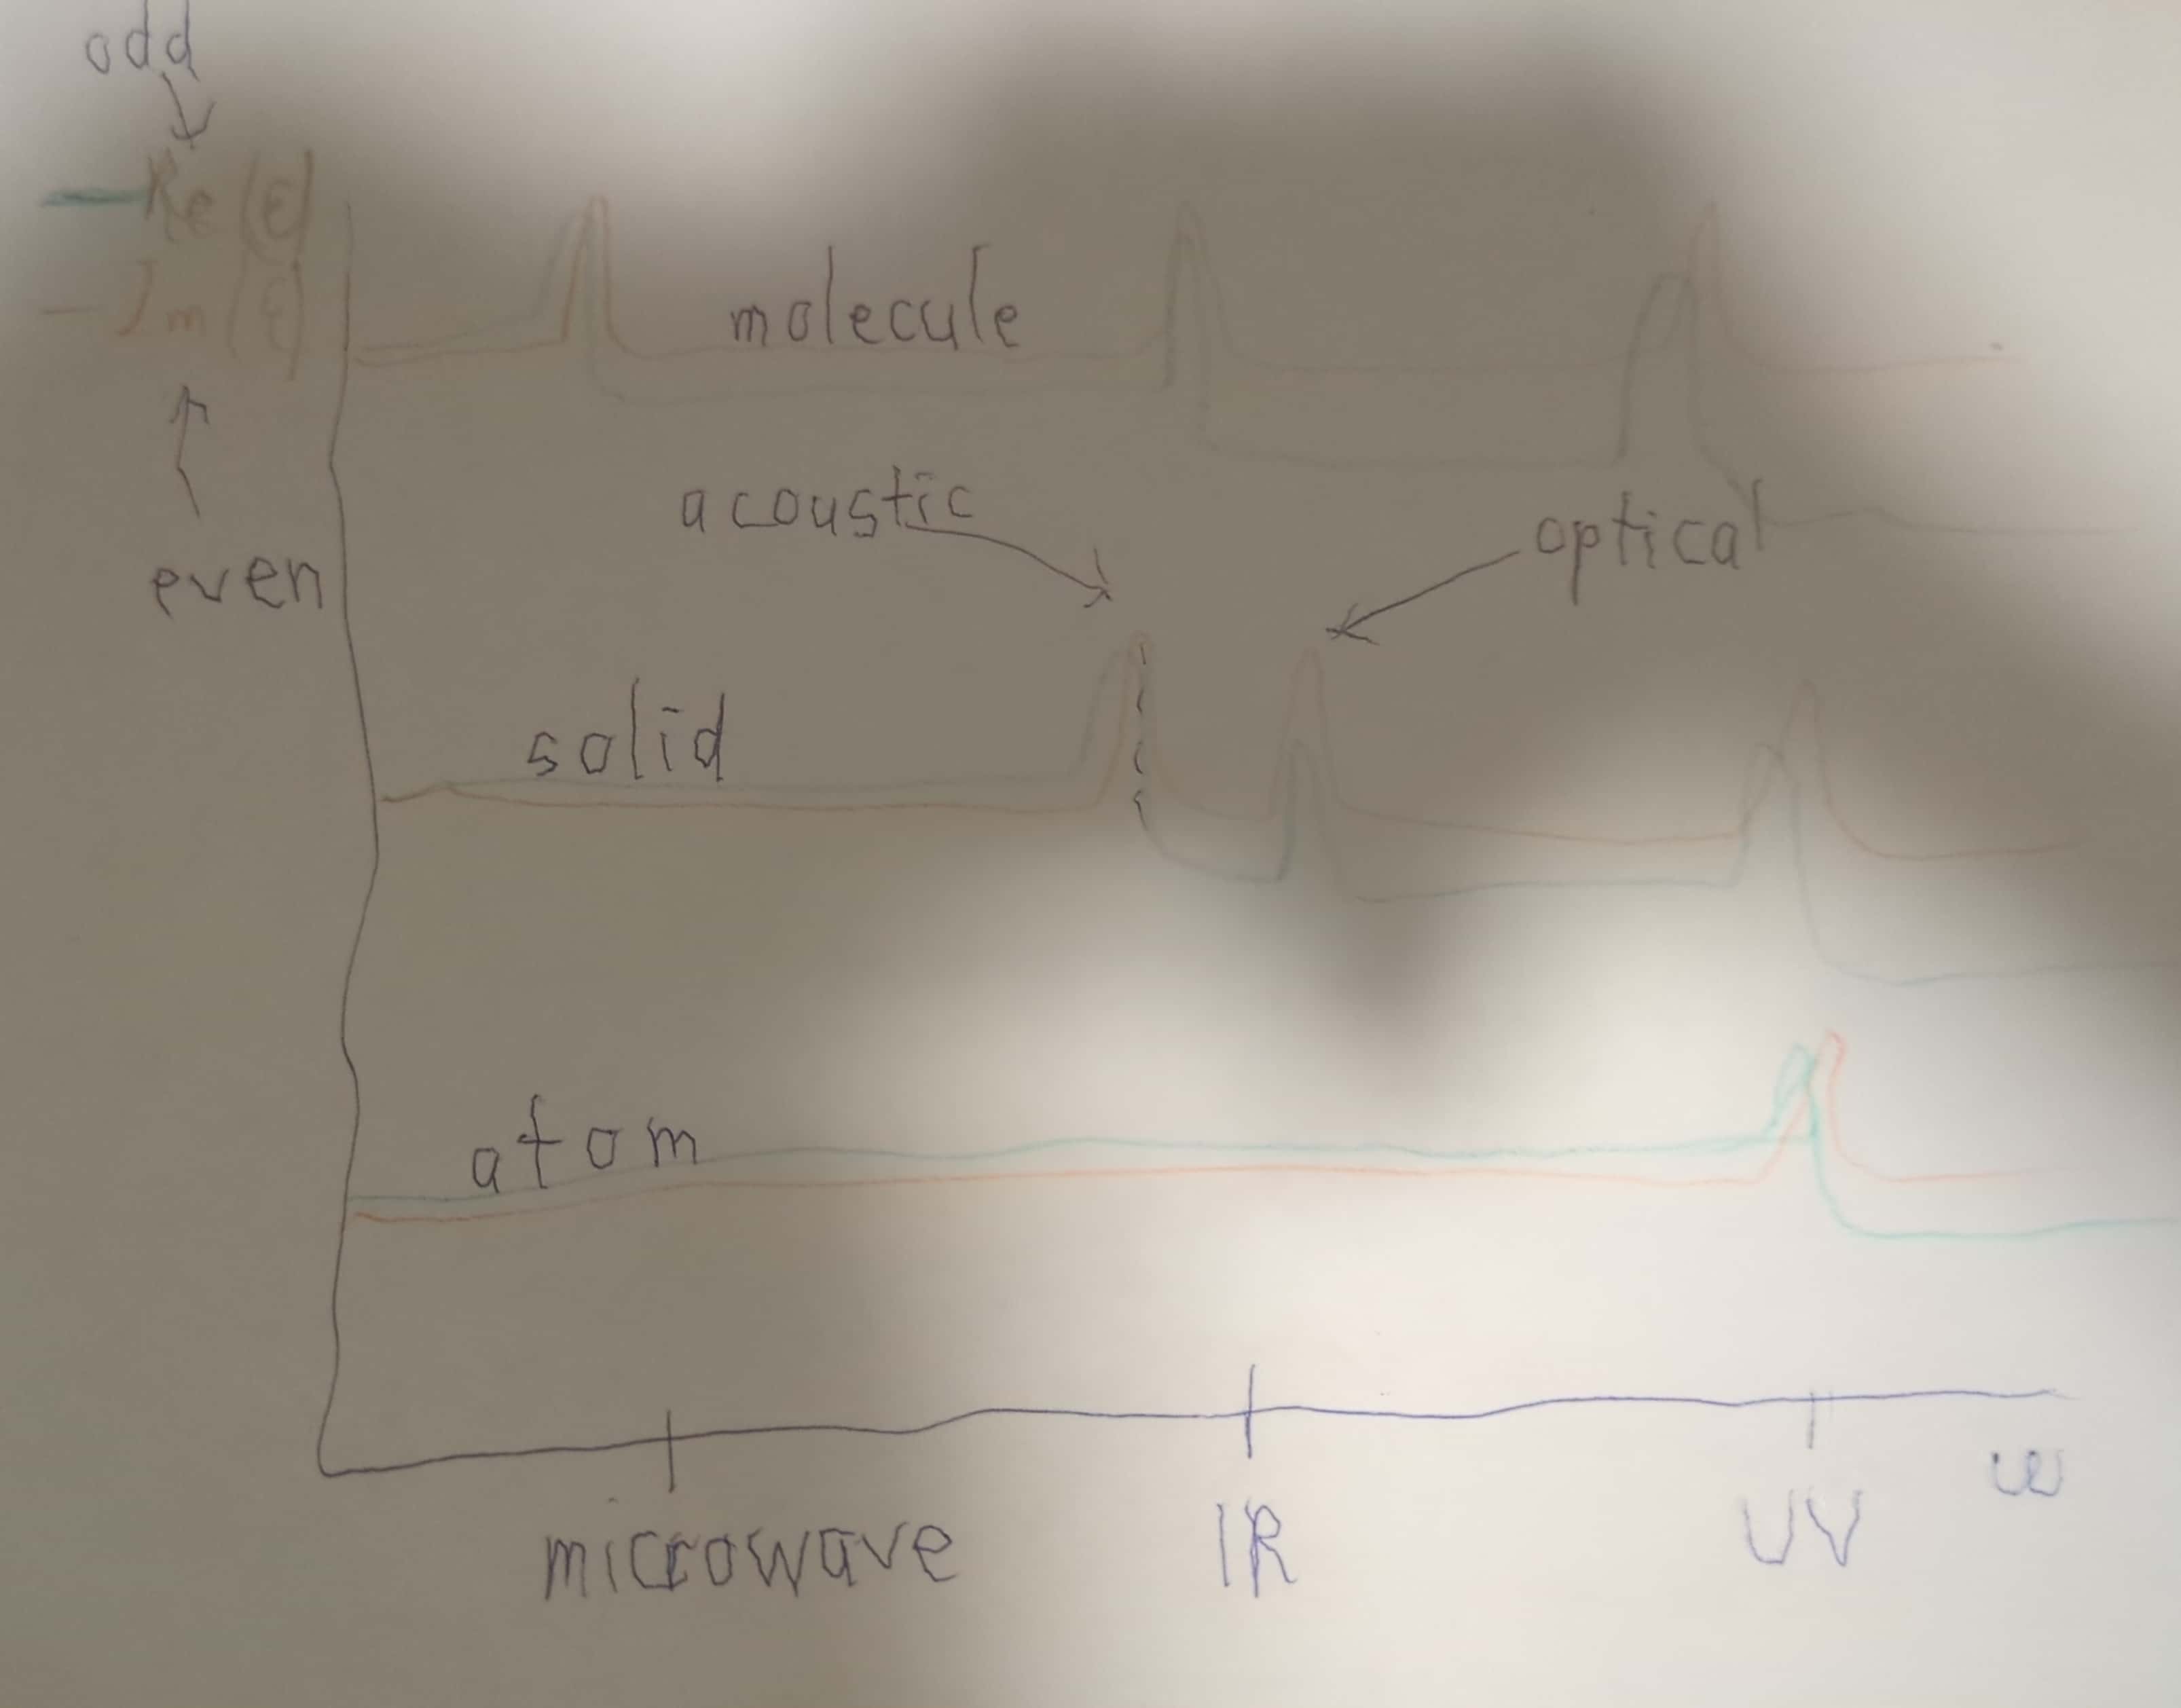 odd
Re(ε)
Im(ε)
even
molecule
acoustic
optical
solid
atom
microwave
IR
UV
ω